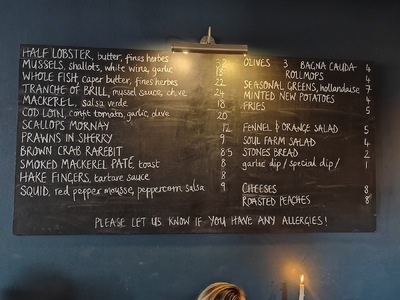 HALF LOBSTER, butter, fines herbes
MUSSELS, shallots, white wine, garlic
WHOLE FISH, caper butter, fines herbes 22
TRANCHE OF BRILL, mussel sauce, chive 24
MACKEREL, salsa verde 18
COD LOIN, comté tomato, garlic, olive 20
SCALLOPS MORNAY 12
PRAWNS IN SHERRY 9
BROWN CRAB RAREBIT 8.5
SMOKED MACKEREL PATÉ, toast 8
HAKE FINGERS, tartare sauce 8
SQUID, red pepper mousse, peppercorn salsa 9
OLIVES 3 BAGNA CAUDA 4
ROLLMOPS 4
SEASONAL GREENS, hollandaise 7
MINTED NEW POTATOES 4
FRIES 5
FENNEL & ORANGE SALAD 5
SOUL FARM SALAD 4
STONES BREAD 2
garlic dip / special dip / 1
CHEESES 8
ROASTED PEACHES 8
PLEASE LET US KNOW IF YOU HAVE ANY ALLERGIES!